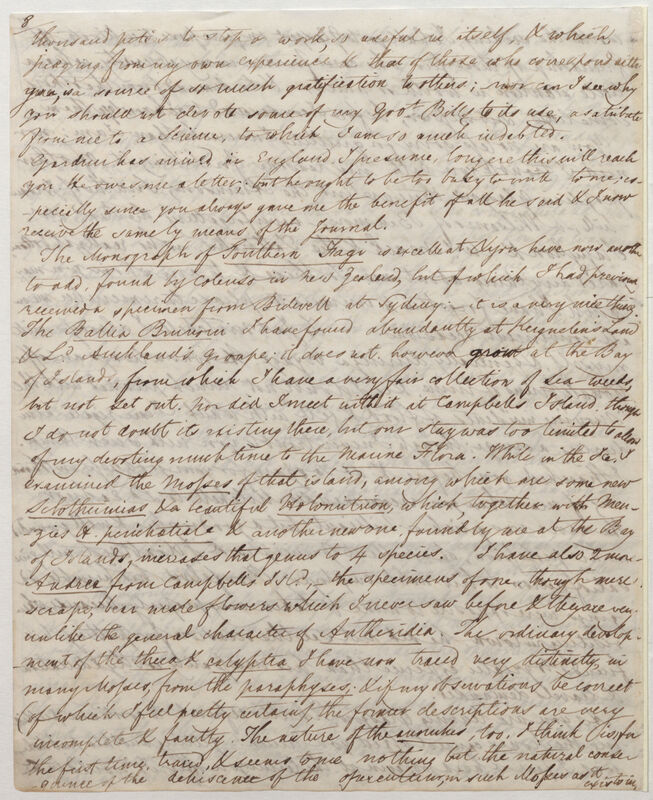 8
thousand pities to stop a work, so useful in itself, & which,
judging from my own experience & that of those who correspond with
you, is a source of so much gratification to others; nor can I see why
you should not devote some of my Govt. Bills to its use, as a tribute
from me to a Science, to which I am so much indebted.
Gardner has arrived in England, I presume, long ere this will reach
you. He owes me a letter; but he ought to be too busy to write to me; es-
-pecially since you always gave me the benefit of all he said & I now
receive the same by means of the Journal.
The Monograph of Southern Fagi is excellent & you have now another
to add, found by Colenso in New Zealand, but of which I had previously
received a specimen from Bidwell at Sydney: it is a very nice thing.
The Ballia Brunonia I have found abundantly at Kerguelen's Land
& Ld. Auckland's groupe; it does not however grow at the Bay
of Islands, from which I have a very fair collection of sea weeds,
but not set out. Nor did I meet with it at Campbell's Island though
I do not doubt its existing there, but our stay was too limited to allow
of my devoting much time to the Marine Flora. While in the Ice, I
examined the Mosses of that island, among which are some new
Schlotheimias & a beautiful Holomitrion, which together with Men-
-zies H. perichaetiale & another new one found by me at the Bay
of Islands, increases that genus to 4 species. I have also 2 more
Andrea from Campbell's Isld, the specimens of one, though mere
scraps, bear male flowers which I never saw before & they are very
unlike the general character of Antheridia. The ordinary develop-
-ment of the theca & calyptra I have now traced very distinctly, in
many Mosses, from the paraphyses; & if my observations be correct
(of which I feel pretty certain), the former descriptions are very
incomplete & faulty. The nature of the annulus, too, I think is for
the first time, traced, & seems to me nothing but the natural conse-
quence of the dehiscence of the operculum, in such Mosses as it
exists in,